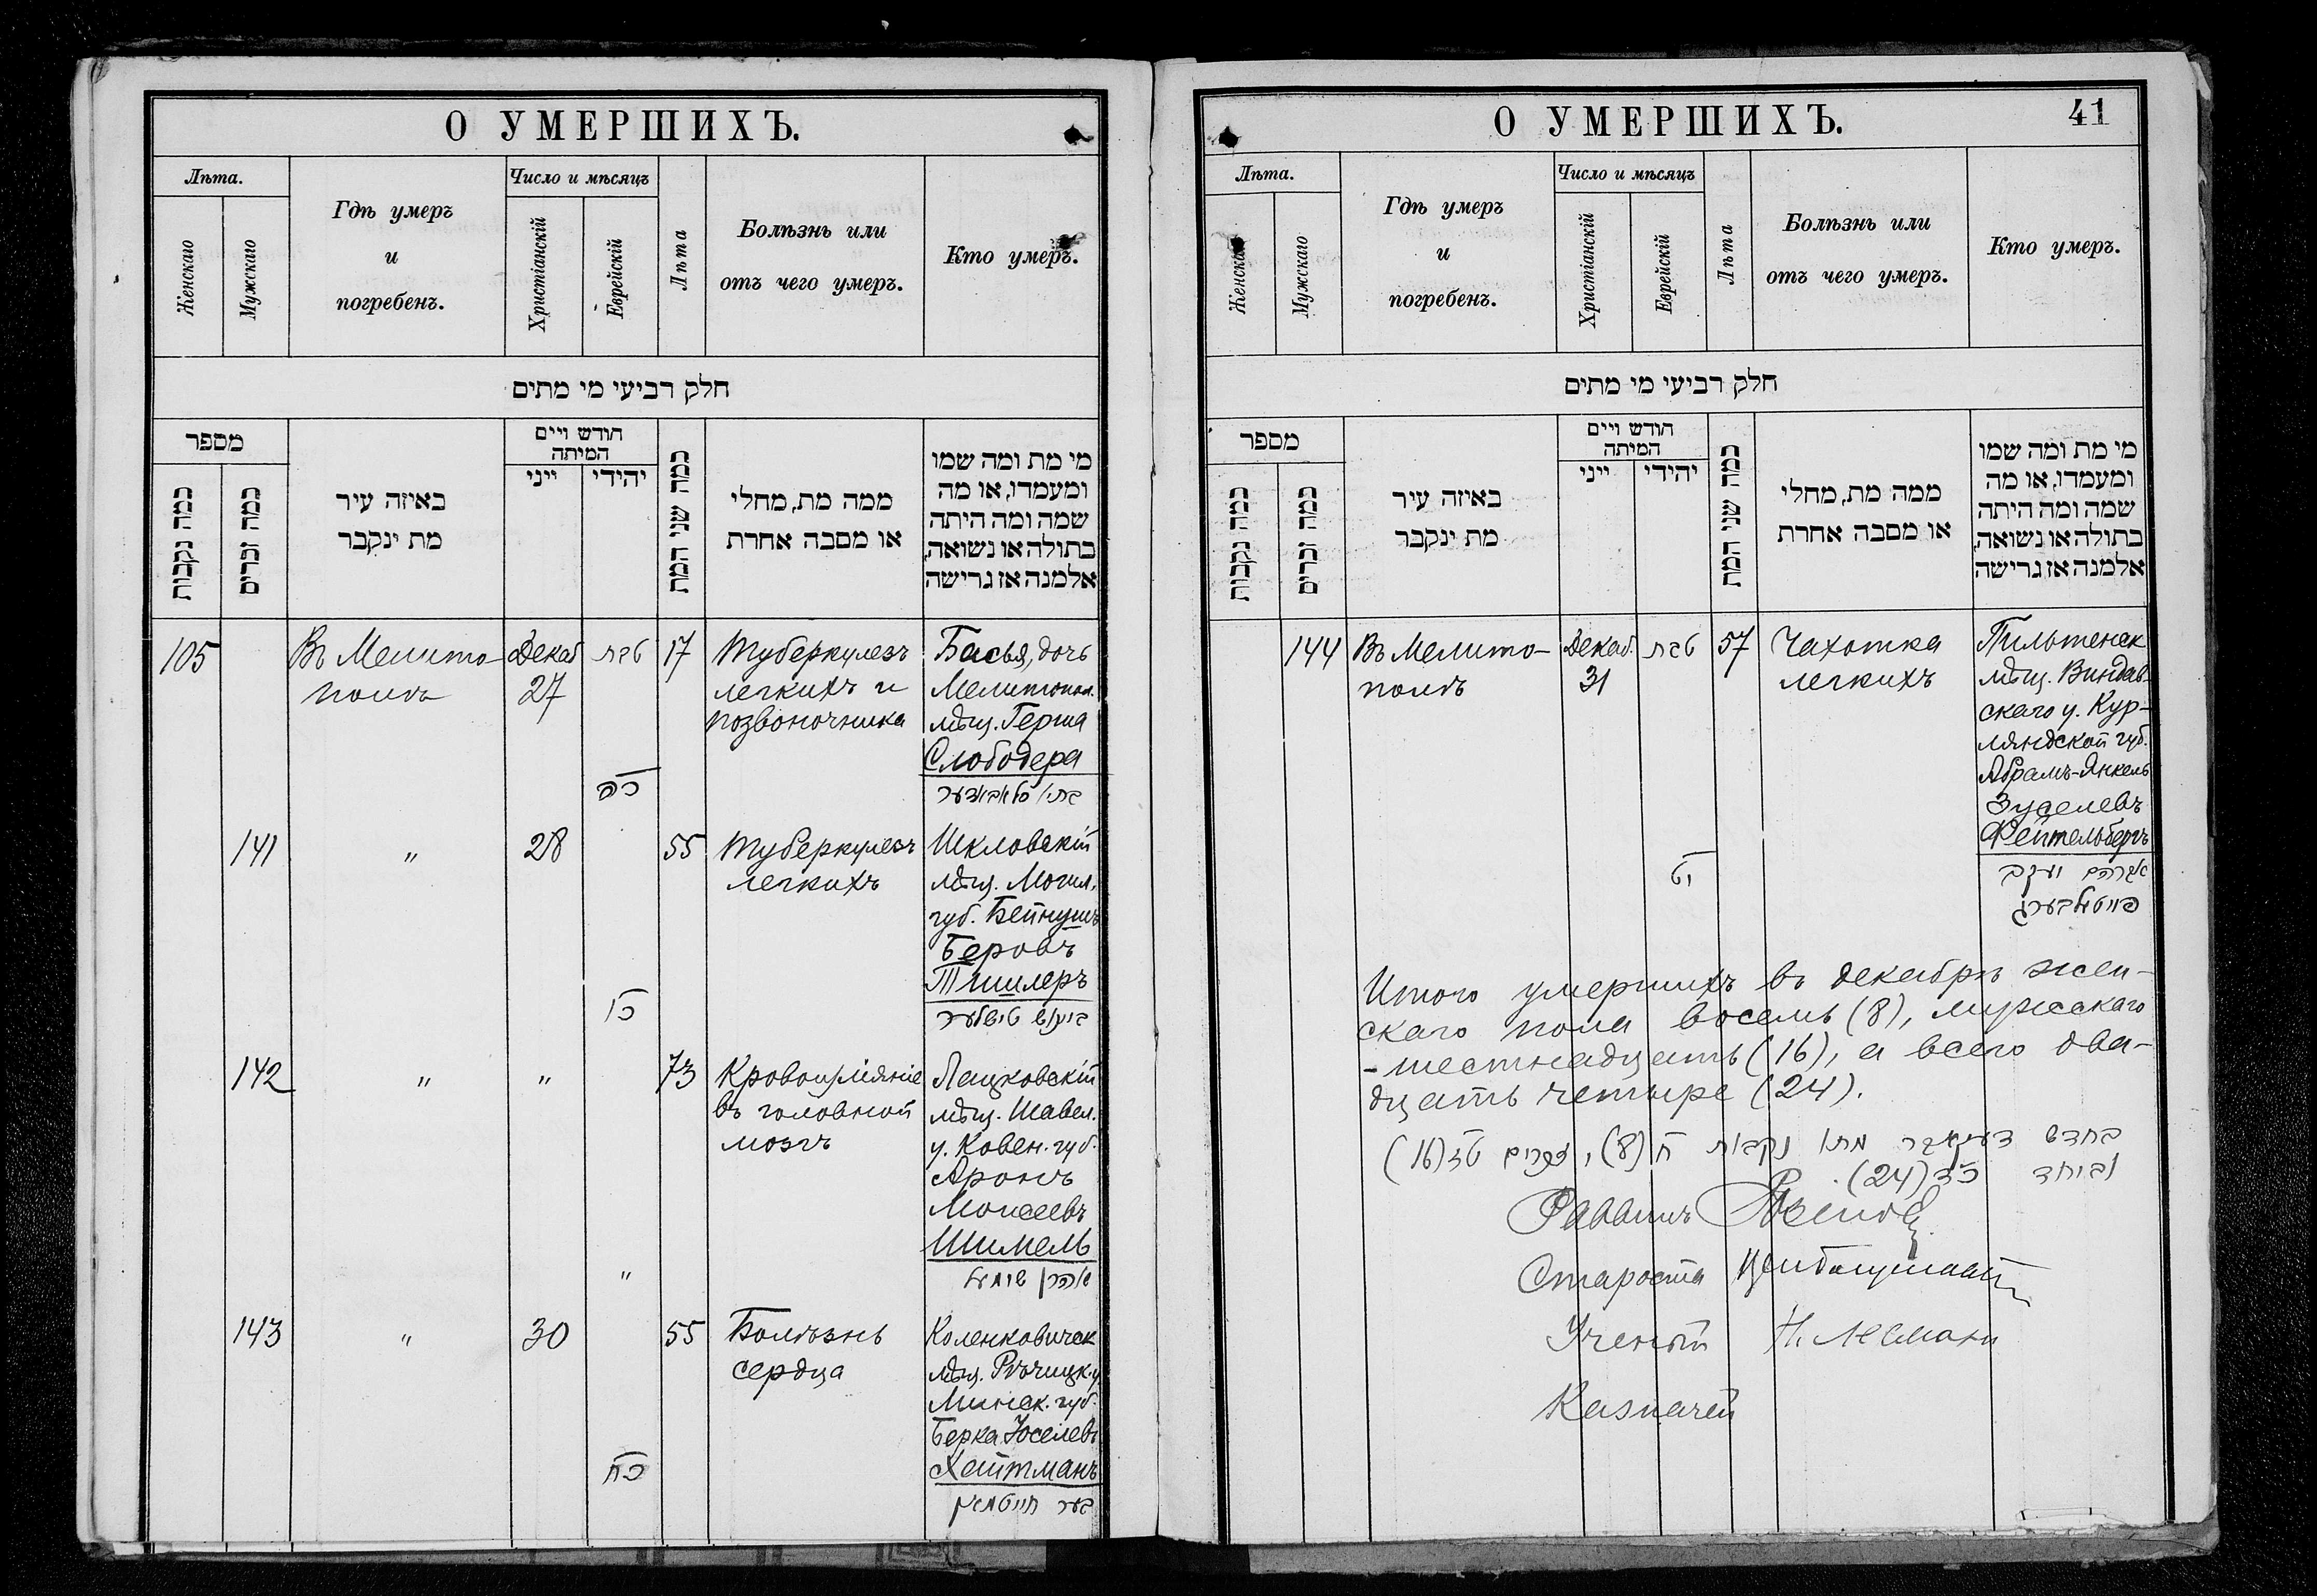 О УМЕРШИХЪ.
Лѣта.
Женскаго
Мужскаго
Гдѣ умеръ
и
погребенъ.
Число и мѣсяцъ
Христіанскій
Еврейскій
Лѣта
Болѣзнь или
отъ чего умеръ.
Кто умеръ.
חלק רביעי מי מתים
מספר
כמה נקבות
כמה זכרים
באיזה עיר
מת ינקבר
חודש ויים
המיתה
ייני
יהידי
כמה שני המת
ממה מת, מחלי
או מסבה אחרת
מי מת ומה שמו
ומעמדו, או מה
שמה ומה היתה
בתולה או נשואה,
אלמנה אז גרישה
105
Въ Мелито-
полѣ
Декаб
27
טבת
כה
17
Туберкулезъ
легкихъ и
позвоночника
Басья, дочь
Мелитопол.
мѣщ. Герша
Слободера
בתי' סלאבאדער
141
"
28
כו
55
Туберкулезъ
легкихъ
Шкловскій
мѣщ. Могил.
губ. Бейнушъ
Беровъ
Тишлеръ
ביינוש טישלער
142
"
"
"
73
Кровоизліяніе
въ головной
мозгъ
Лацковскій
мѣщ. Шавел.
у. Ковен. губ.
Аронъ
Моисеевъ
Шимель
אהרן שימעל
143
"
30
כח
55
Болѣзнь
сердца
Коленковичск
мѣщ. Рѣчицк. у.
Минск. губ.
Берка Іоселевъ
Хайтманъ
בער חייטמאן
О УМЕРШИХЪ.
41
Лѣта.
Женскаго
Мужскаго
Гдѣ умеръ
и
погребенъ.
Число и мѣсяцъ
Христіанскій
Еврейскій
Лѣта
Болѣзнь или
отъ чего умеръ.
Кто умеръ.
חלק רביעי מי מתים
מספר
כמה נקבות
כמה זכרים
באיזה עיר
מת ינקבר
חודש ויים
המיתה
ייני
יהידי
כמה שני המת
ממה מת, מחלי
או מסבה אחרת
מי מת ומה שמו
ומעמדו, או מה
שמה ומה היתה
בתולה או נשואה,
אלמנה אז גרישה
144
Въ Мелито-
полѣ
Декаб.
31
טבת
57
Чахотка
легкихъ
Пильтенск
мѣщ. Виндав-
скаго у. Кур-
ляндской губ.
Абрамъ-Янкель
Зуселевъ
Фейтельбергъ
אברהם יעקב
פייטעלבערג
Итого умершихъ въ декабрѣ жен-
скаго пола восемь (8), мужскаго
-шестнадцать (16), а всего два-
дцать четыре (24).
בחדש דעקאבר מתו נקבות ח (8), זכרים טז (16)
וביחד כד (24).
Раввинъ
Староста
Ученый
Казначей